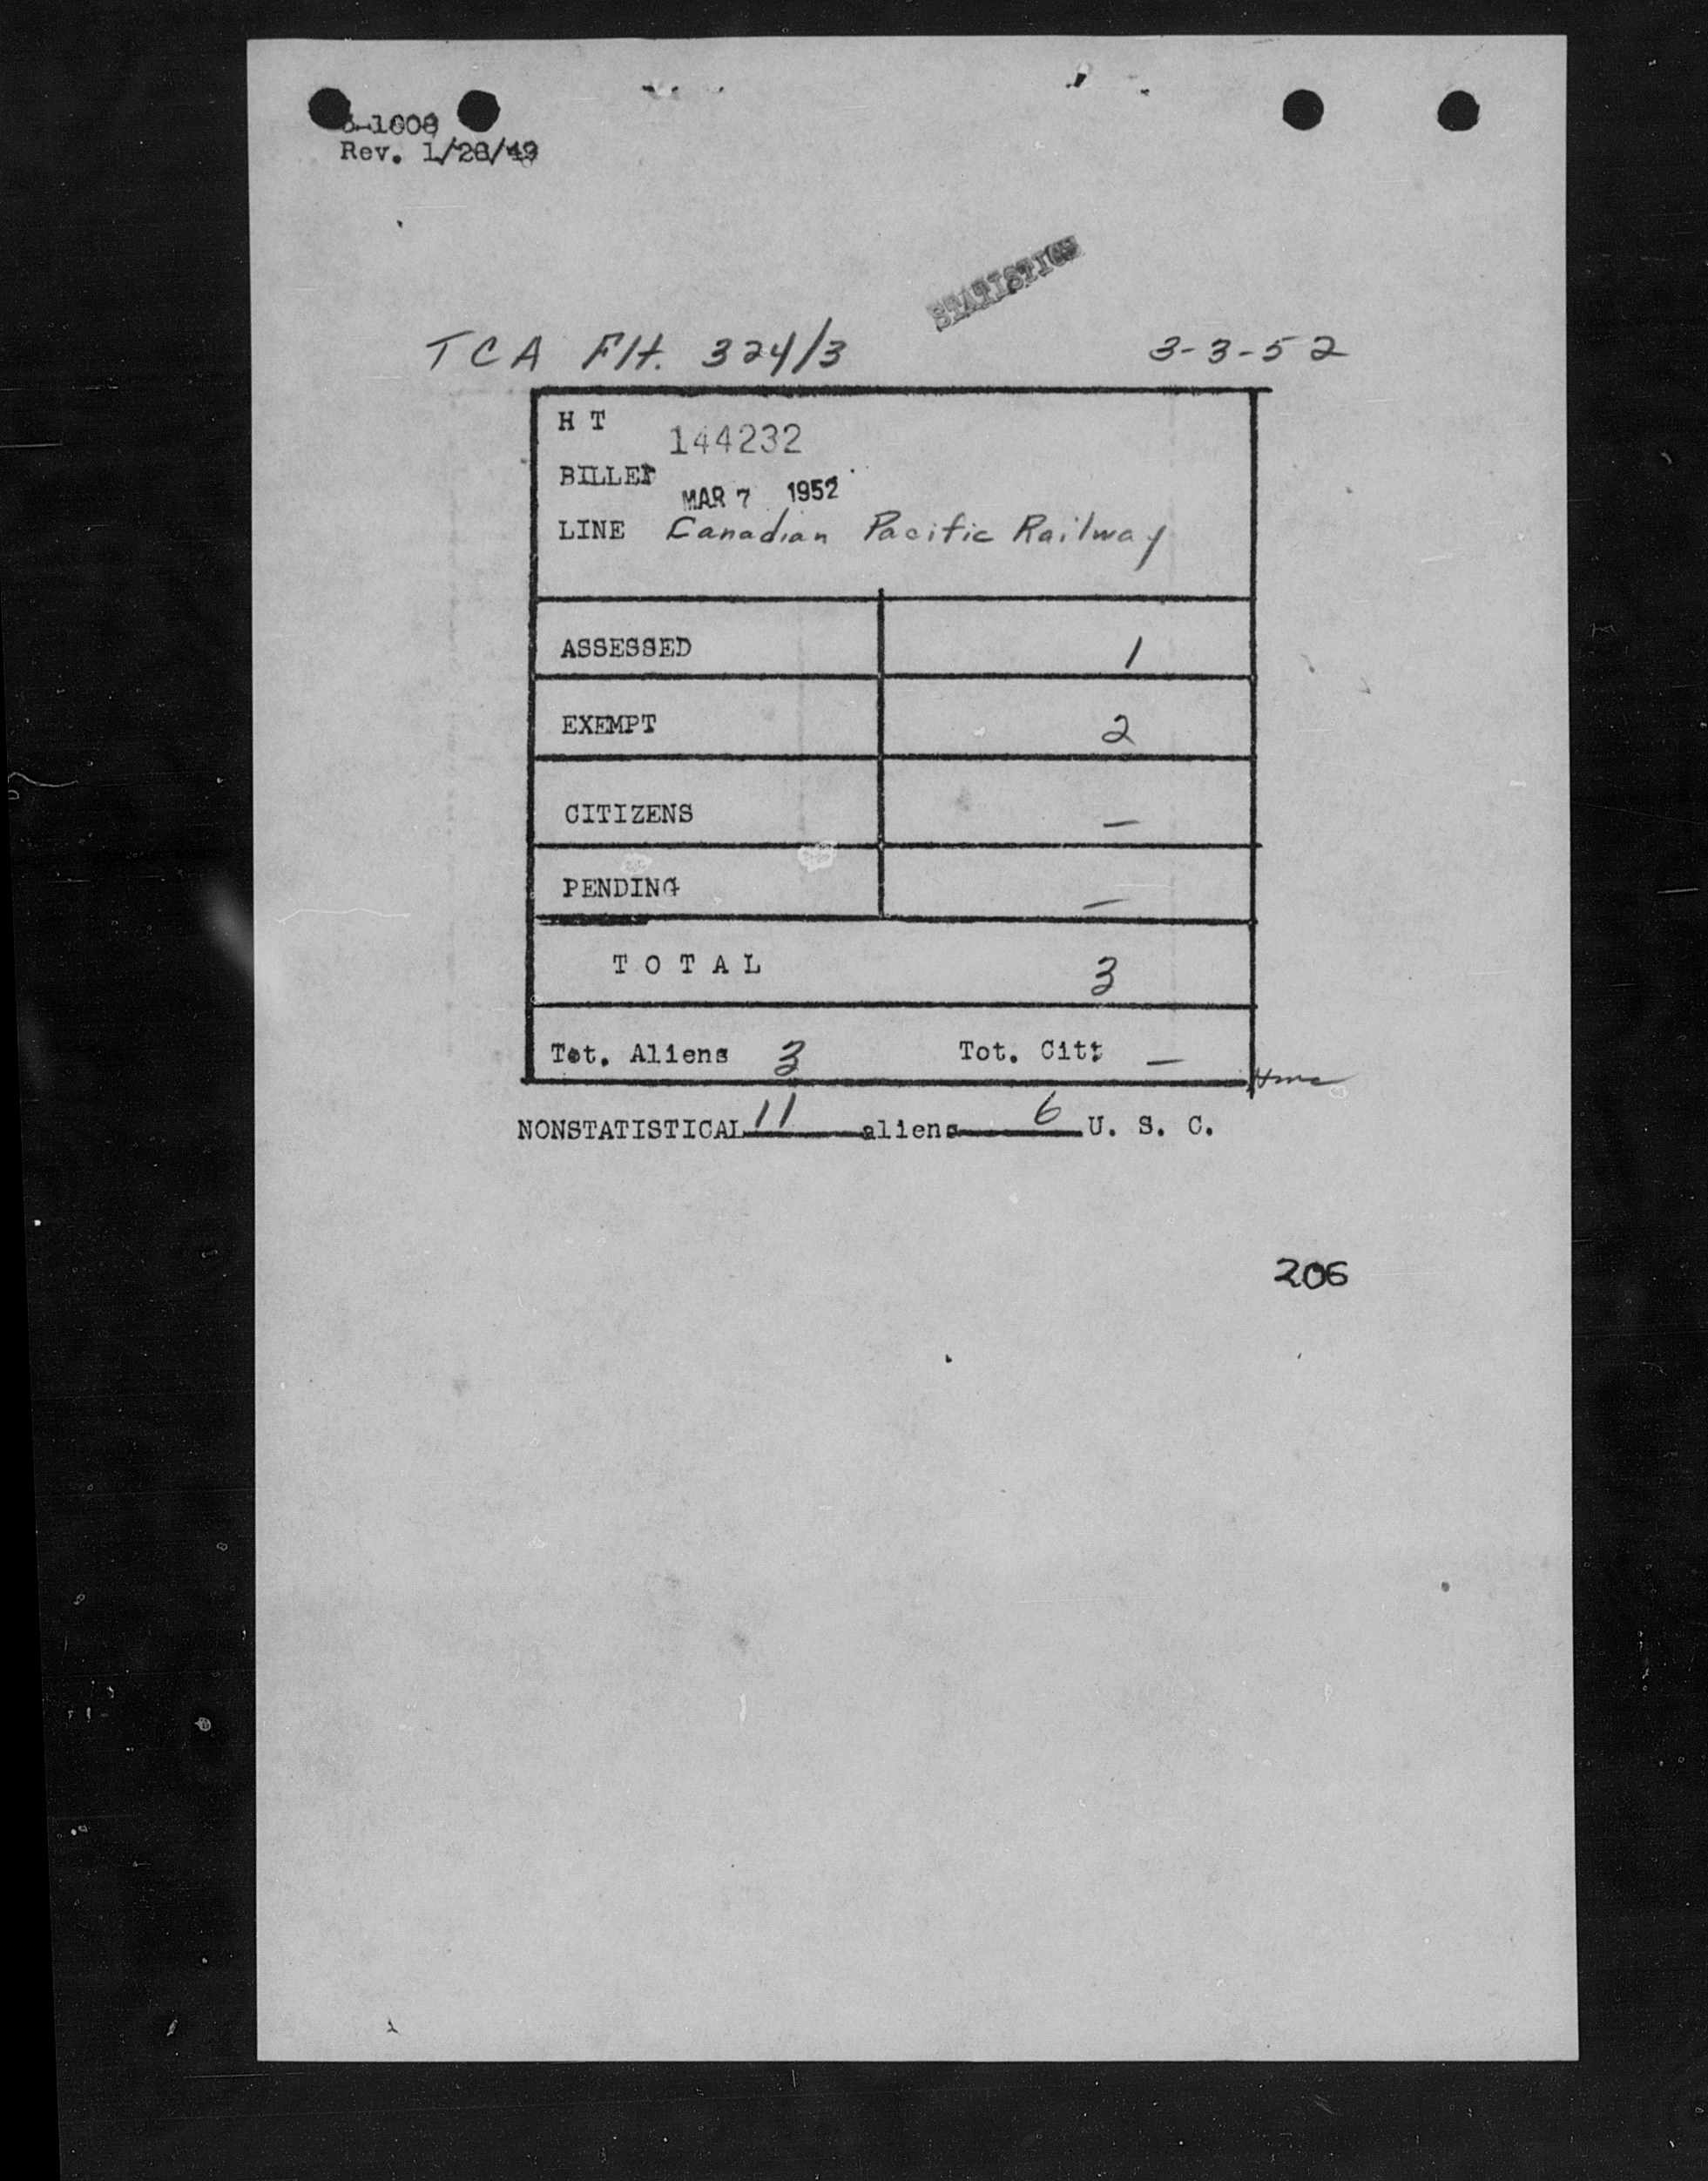 -1008
Rev. 1/28/49
STATISTICS
TCA Flt. 324/3 3-3-52
H T 144232
BILLED MAR 7 1952
LINE Canadian Pacific Railway
ASSESSED 1
EXEMPT 2
CITIZENS —
PENDING —
T O T A L 3
Tot. Aliens 3 Tot. Cit: —
NONSTATISTICAL 11 aliens 6 U. S. C.
206